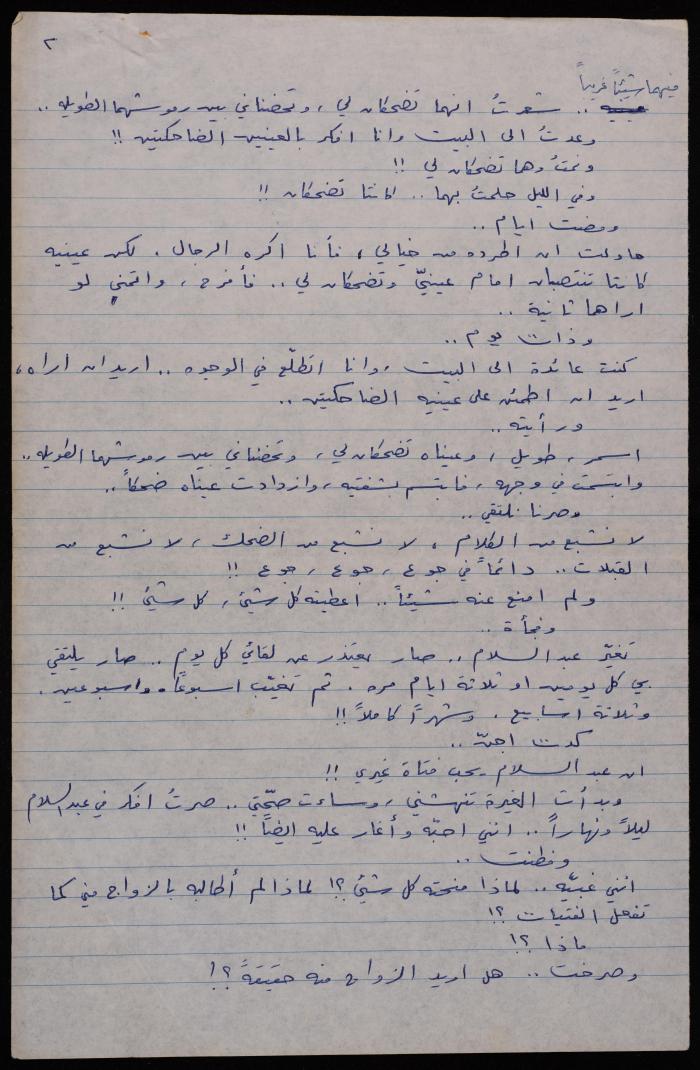 ٢
فيهما شيئاً غريباً
.. شعرتُ انهما تضحكان لي ، وتحضناني بين رموشهما الطويله ..
وعدتُ الى البيت وانا افكر بالعينين الضاحكتين !!
ونمتُ وهما تضحكان لي !!
وفي الليل حلمتُ بهما .. كانتا تضحكان !!
ومضت ايام ..
حاولت ان اطرده من خيالي ، فأنا اكره الرجال . لكن عينيه
كانتا تنتصبان امام عينيّ وتضحكان لي .. فأفرح ، واتمنى لو
اراها ثانية ..
وذات يوم ..
كنت عائدة الى البيت ، وانا اتطلّع في الوجوه .. اريد ان اراه ،
اريد ان اطمئن على عينيه الضاحكتين ..
ورأيته ..
اسمر ، طويل ، وعيناه تضحكان لي ، وتحضناني بين رموشهما الطويله ..
وابتسمت في وجهه ، فابتسم بشفتيه ، وازدادت عيناه ضحكاً ..
وصرنا نلتقي ..
لا نشبع من الكلام ، لا نشبع من الضحك ، لا نشبع من
القبلات .. دائماً في جوع ، جوع ، جوع !!
ولم امنع عنه شيئاً .. اعطيته كل شيئ ، كل شيئ !!
وفجأة ..
تغيّر عبد السلام .. صار يعتذر عن لقائي كل يوم .. صار يلتقي
بي كل يومين او ثلاثة ايام مره . ثم تغيّب اسبوعاً ، واسبوعين .
وثلاثة اسابيع . وشهراً كاملاً !!
كدت اجنّ ..
ان عبد السلام يحب فتاة غيري !!
وبدأت الغيرة تنهشني ، وساءت صحّتي .. صرتُ افكر في عبد السلام
ليلاً ونهاراً .. انني احبّه وأغار عليه ايضاً !!
وفطنت ..
انني غبيّه .. لماذا منحته كل شيئ ؟! لماذا لم أطالبه بالزواج مني كما
تفعل الفتيات ؟!
ماذا ؟!
وصرخت .. هل اريد الزواج منه حقيقةً ؟!